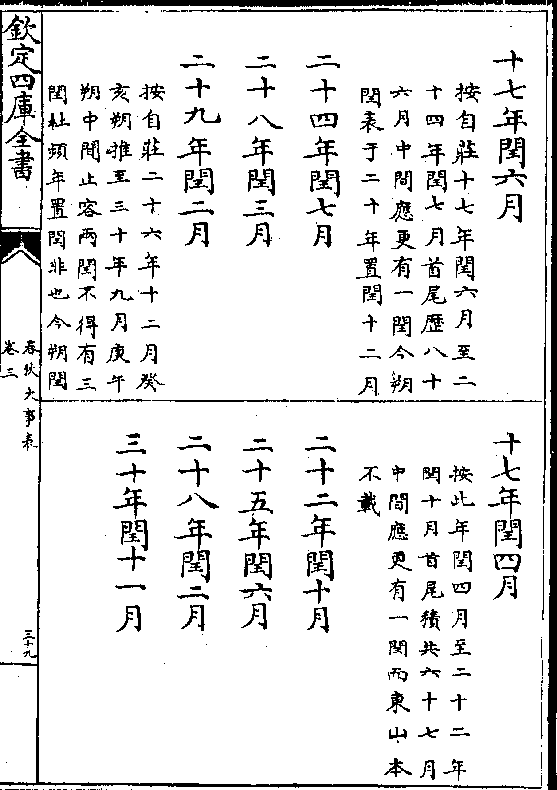 十七年閏六月
按自莊十七年閏六月至二
十四年閏七月首尾歷八十
六月中間應更有一閏今朔
閏表于二十年置閏十二月
二十四年閏七月
二十八年閏三月
二十九年閏二月
按自莊二十六年十二月癸
亥朔推至三十年九月庚午
朔中間止容兩閏不得有三
閏杜頻年置閏非也今朔閏
十七年閏四月
按此年閏四月至二十二年
閏十月首尾積共六十七月
中間應更有一閏而東山本
不載
二十二年閏十月
二十五年閏六月
二十八年閏二月
三十年閏十一月
欽定四庫全書
春秋大事表
卷三
三十九